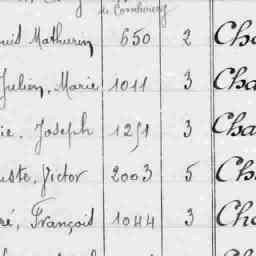 de Combourg
Mathurin 650 2 Cha
Julien, Marie 1011 3 Cha
Joseph 1251 3 Cha
Victor 2003 5 Ch
François 1044 3 Cha